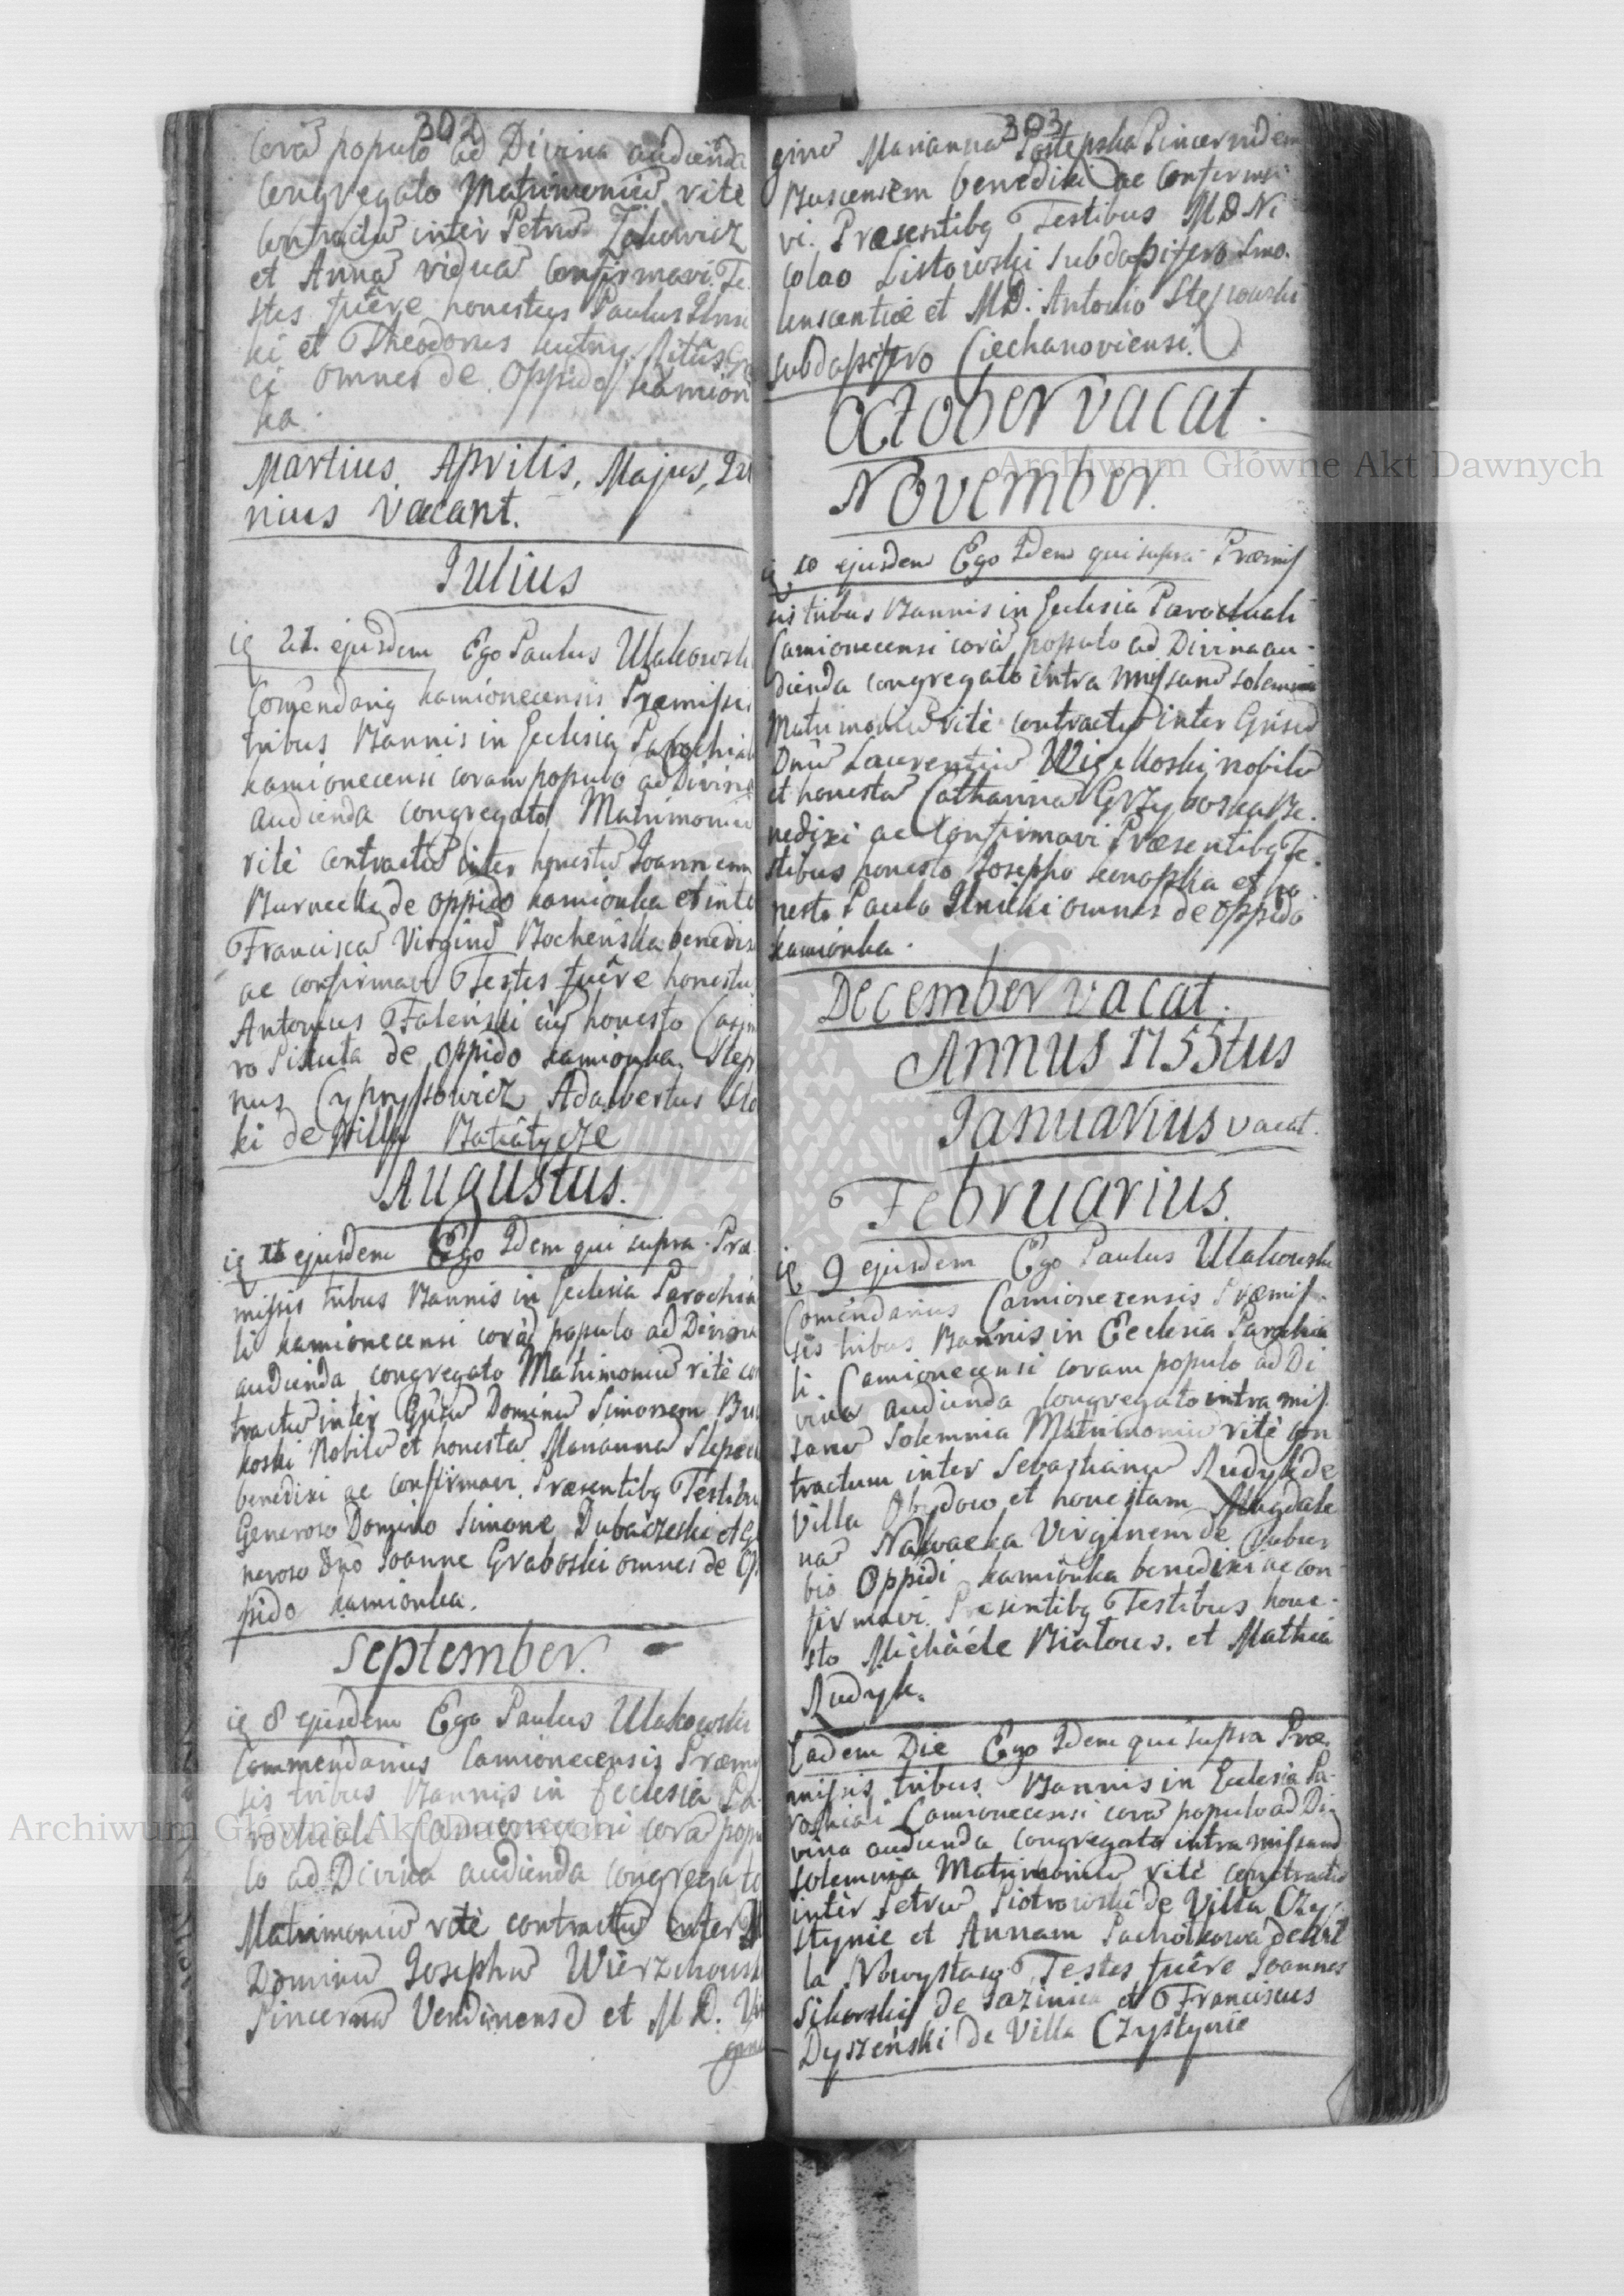 302
Corã populo ad Divina audienda
Congregato Matrimoniũ ritè
Contractũ inter Petrũ Żakowicz
et Annã viduã Confirmavi. Te-
stes fuêre honestus Paulus Ilnic
ki et Theodorus ritûs Gre
ci omnes de Oppido Kamion
ka.
Martius, Aprilis, Majus, Iu
nius Vacant.
Iulius
21. ejusdem Ego Paulus Ulakowski
Comendariꝰ Kamionecensis Præmissis
tribus Bannis in Ecclesia Parochiali
Kamionecensi coram populo ad Divina
audienda congregato Matrimoniũ
ritè contractũ inter honestũ Joannem
Burnecki de oppido Kamionka et inter
Franciscã Virginẽ Bocheńska benedixi
ac confirmavi Testes fuêre honestus
Antonius Falenski cũ honesto Casimi
ro Sikuta de Oppido Kamionka. Step
nus Cypryssowicz Adalbertus
ki de Villa Batiatycze
Augustus.
ejusdem Ego Idem qui supra Præ-
missis tribus Bannis in Ecclesia Parochia
li Kamionecensi corã populo ad Divina
audienda congregato Matrimoniũ ritè con
tractũ inter Gnsũ Dominũ Simonem
koski Nobilẽ et honestã Mariannã
benedixi ac confirmavi. Præsentibꝰ Testibus
Generoso Domino Simone Dubaczeski et Ge
neroso Dno Joanne Graboski omnes de Op
pido Kamionka.
September.
8 ejusdem Ego Paulus Ulakowski
Commendarius Camionecensis Præmis
sis tribus Bannis in Ecclesia Pa
rochiali Camionecensi corã popu
lo ad Divina audienda congregato
Matrimoniũ ritè contractũ inter M
Dominũ Josephũ Wierzchowski
Pincernã Vendinensẽ et M D. Vir
ginẽ
303
ginẽ Mariannã Postępska Pincernidem
Buscensem benedixi ac Confirma
vi. Præsentibꝰ Testibus M D Ni
colao Listowski Subdapifero Smo-
lenscentiæ et M D. Antonio Stęzowski
subdapifero Ciechanoviensi.
October vacat.
November.
10 ejusdem Ego Idem qui supra Præmis
sis tribus Bannis in Ecclesia Parochiali
Camionecensi corã populo ad Divina au-
dienda congregato intra missarũ solemnia
Matrimoniũ ritè contractũ inter Gnsũ
Dnũ Laurentiũ nobilẽ
et honestã Catharinã Grzyboska Be-
nedixi ac Confirmavi Præsentibꝰ Te-
stibus honesto Josepho Konopka et ho
nesto Paulo Ilnicki omnes de Oppido
Kamionka.
December vacat.
Annus 1755tus
Ianuarius vacat.
Februarius.
9 ejusdem Ego Paulus Ulakowski
Comẽndarius Camionecensis Præmis-
sis tribus Bannis in Ecclesia Parochia
li Camionecensi coram populo ad Di
vina audienda Congregato intra mis-
sarũ Solemnia Matrimoniũ ritè con
tractum inter Sebastianũ Rudyk de
Villa Obydow et honestam Magdale
nã Nowacka Virginem de Subur
bio Oppidi Kamionka benedixi ac con-
firmavi. Præsentibꝰ Testibus hone-
sto Michaële Białous. et Mathia
Rudyk.
Eadem Die Ego Idem qui supra Præ-
missis tribus Bannis in Ecclesia Pa-
rochiali Camionecensi corã populo ad Di-
vina audienda congregato intra missarũ
solemnia Matrimoniũ ritè contractũ
inter Petrũ Piotrowski de Villa Czy-
stynie et Annam Pachołkowa de Vil
la Nowystaw. Testes fuêre Joannes
Sikorski de Jazinica et Franciscus
Dyszeński de Villa Czystynie
Archiwum Główne Akt Dawnych
Archiwum Główne Akt Dawnych